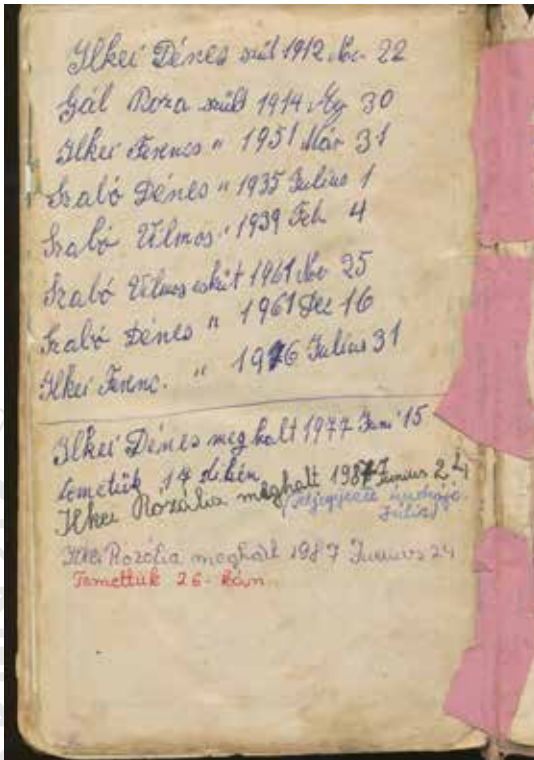 Ilkei Dénes szül 1912. Nov. 22
Gál Roza szült 1914. Ag 30
Ilkei Ferencz " 1951 Már 31
Szabó Dénes " 1935 Julius 1
Szabó Vilmos " 1939 Feb. 4
Szabó Vilmos esküt 1961 Nov 25
Szabó Dénes " 1961 Dec 16
Ilkei Ferenc. " 1976 Julius 31
Ilkei Dénes meg halt 1977 Juni 15
temetük 17 dikén
Ilkei Rózália meghalt 1987 Junius 24
Júlia)
Ilkei Rozália meghalt 1987 Junius 24
Temettük 26-kán